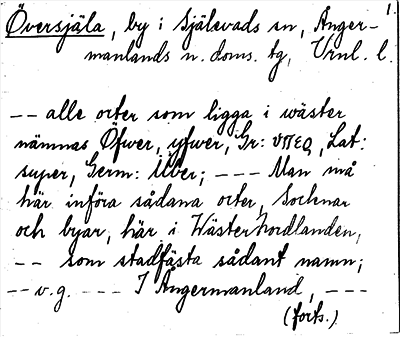 1.
Översjäla, by i Själevads sn, Ånger-
manlands n. doms. tg, Vrnl. l.
-- alle orter som ligga i wäster
nämnas Öfwer, yfwer, Gr: υπερ, Lat:
super, Germ: Über; --- Man må
här införa sådana orter, Socknar
och byar, här i Wäster Nordlanden,
-- som stadfästa sådant namn;
-- v.g. ---- I Ångermanland, ---
(forts.)